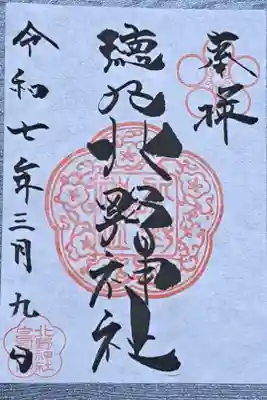 奉拝
徳丸北野神社
令和七年三月九日
北野神社